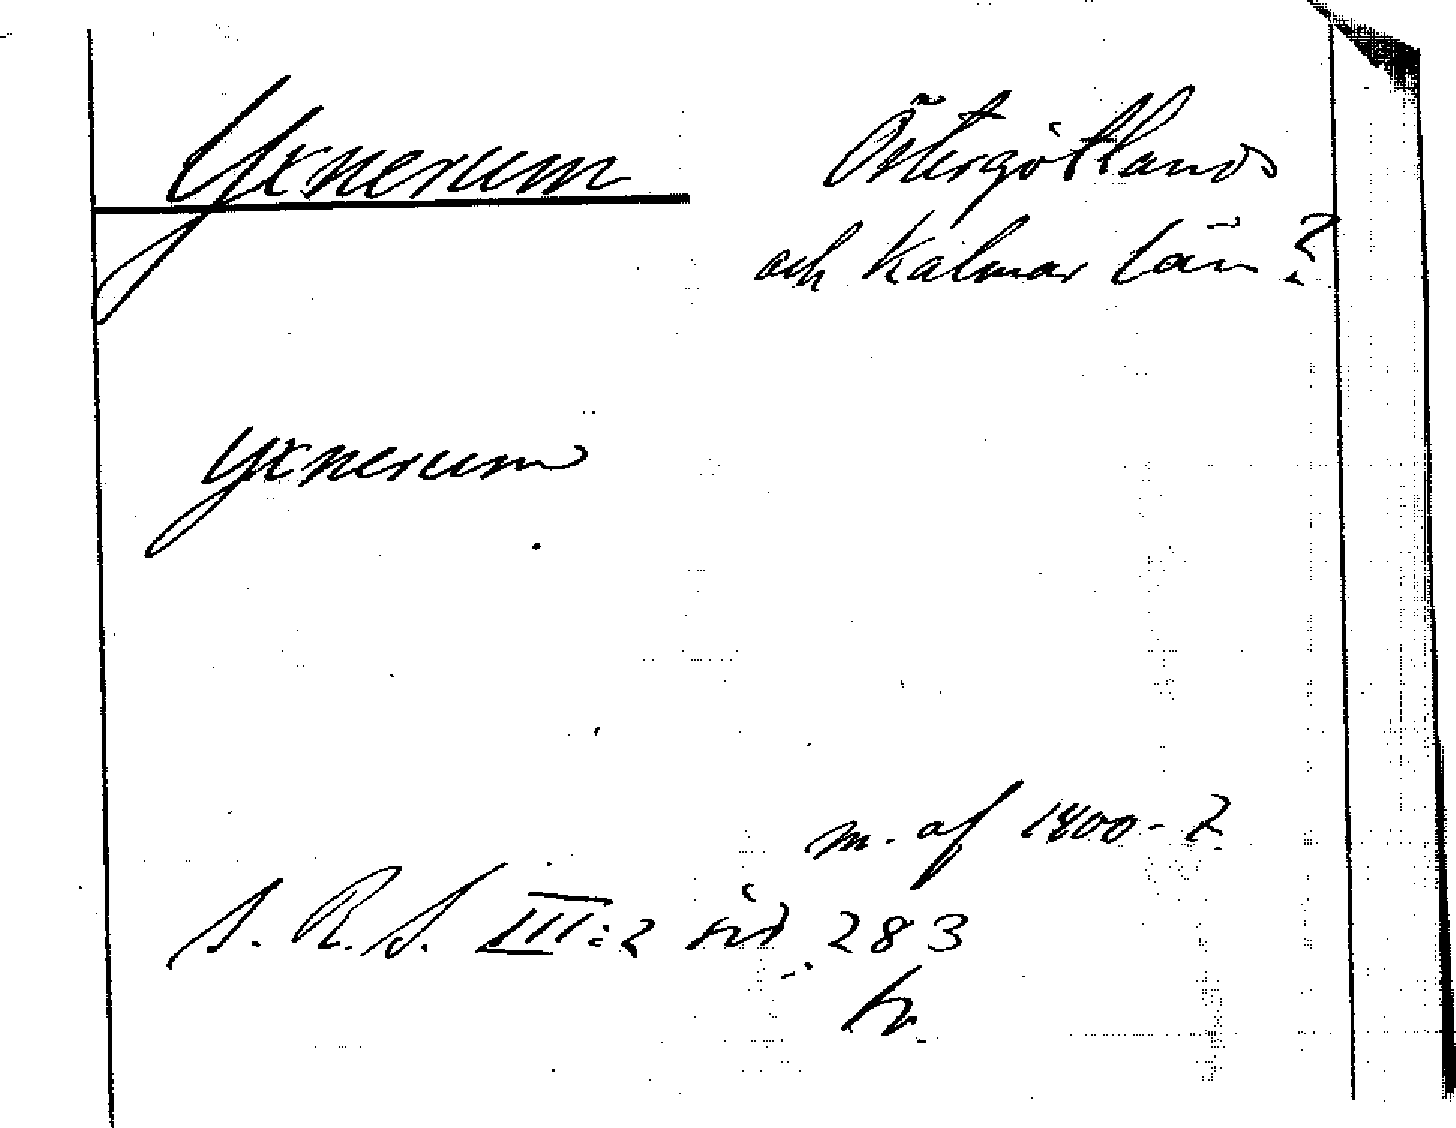 Yxnerum
Östergötlands
och Kalmar län?
yxnerum
m. af 1400-?
S. R. S. III:2 sid. 283
tr.